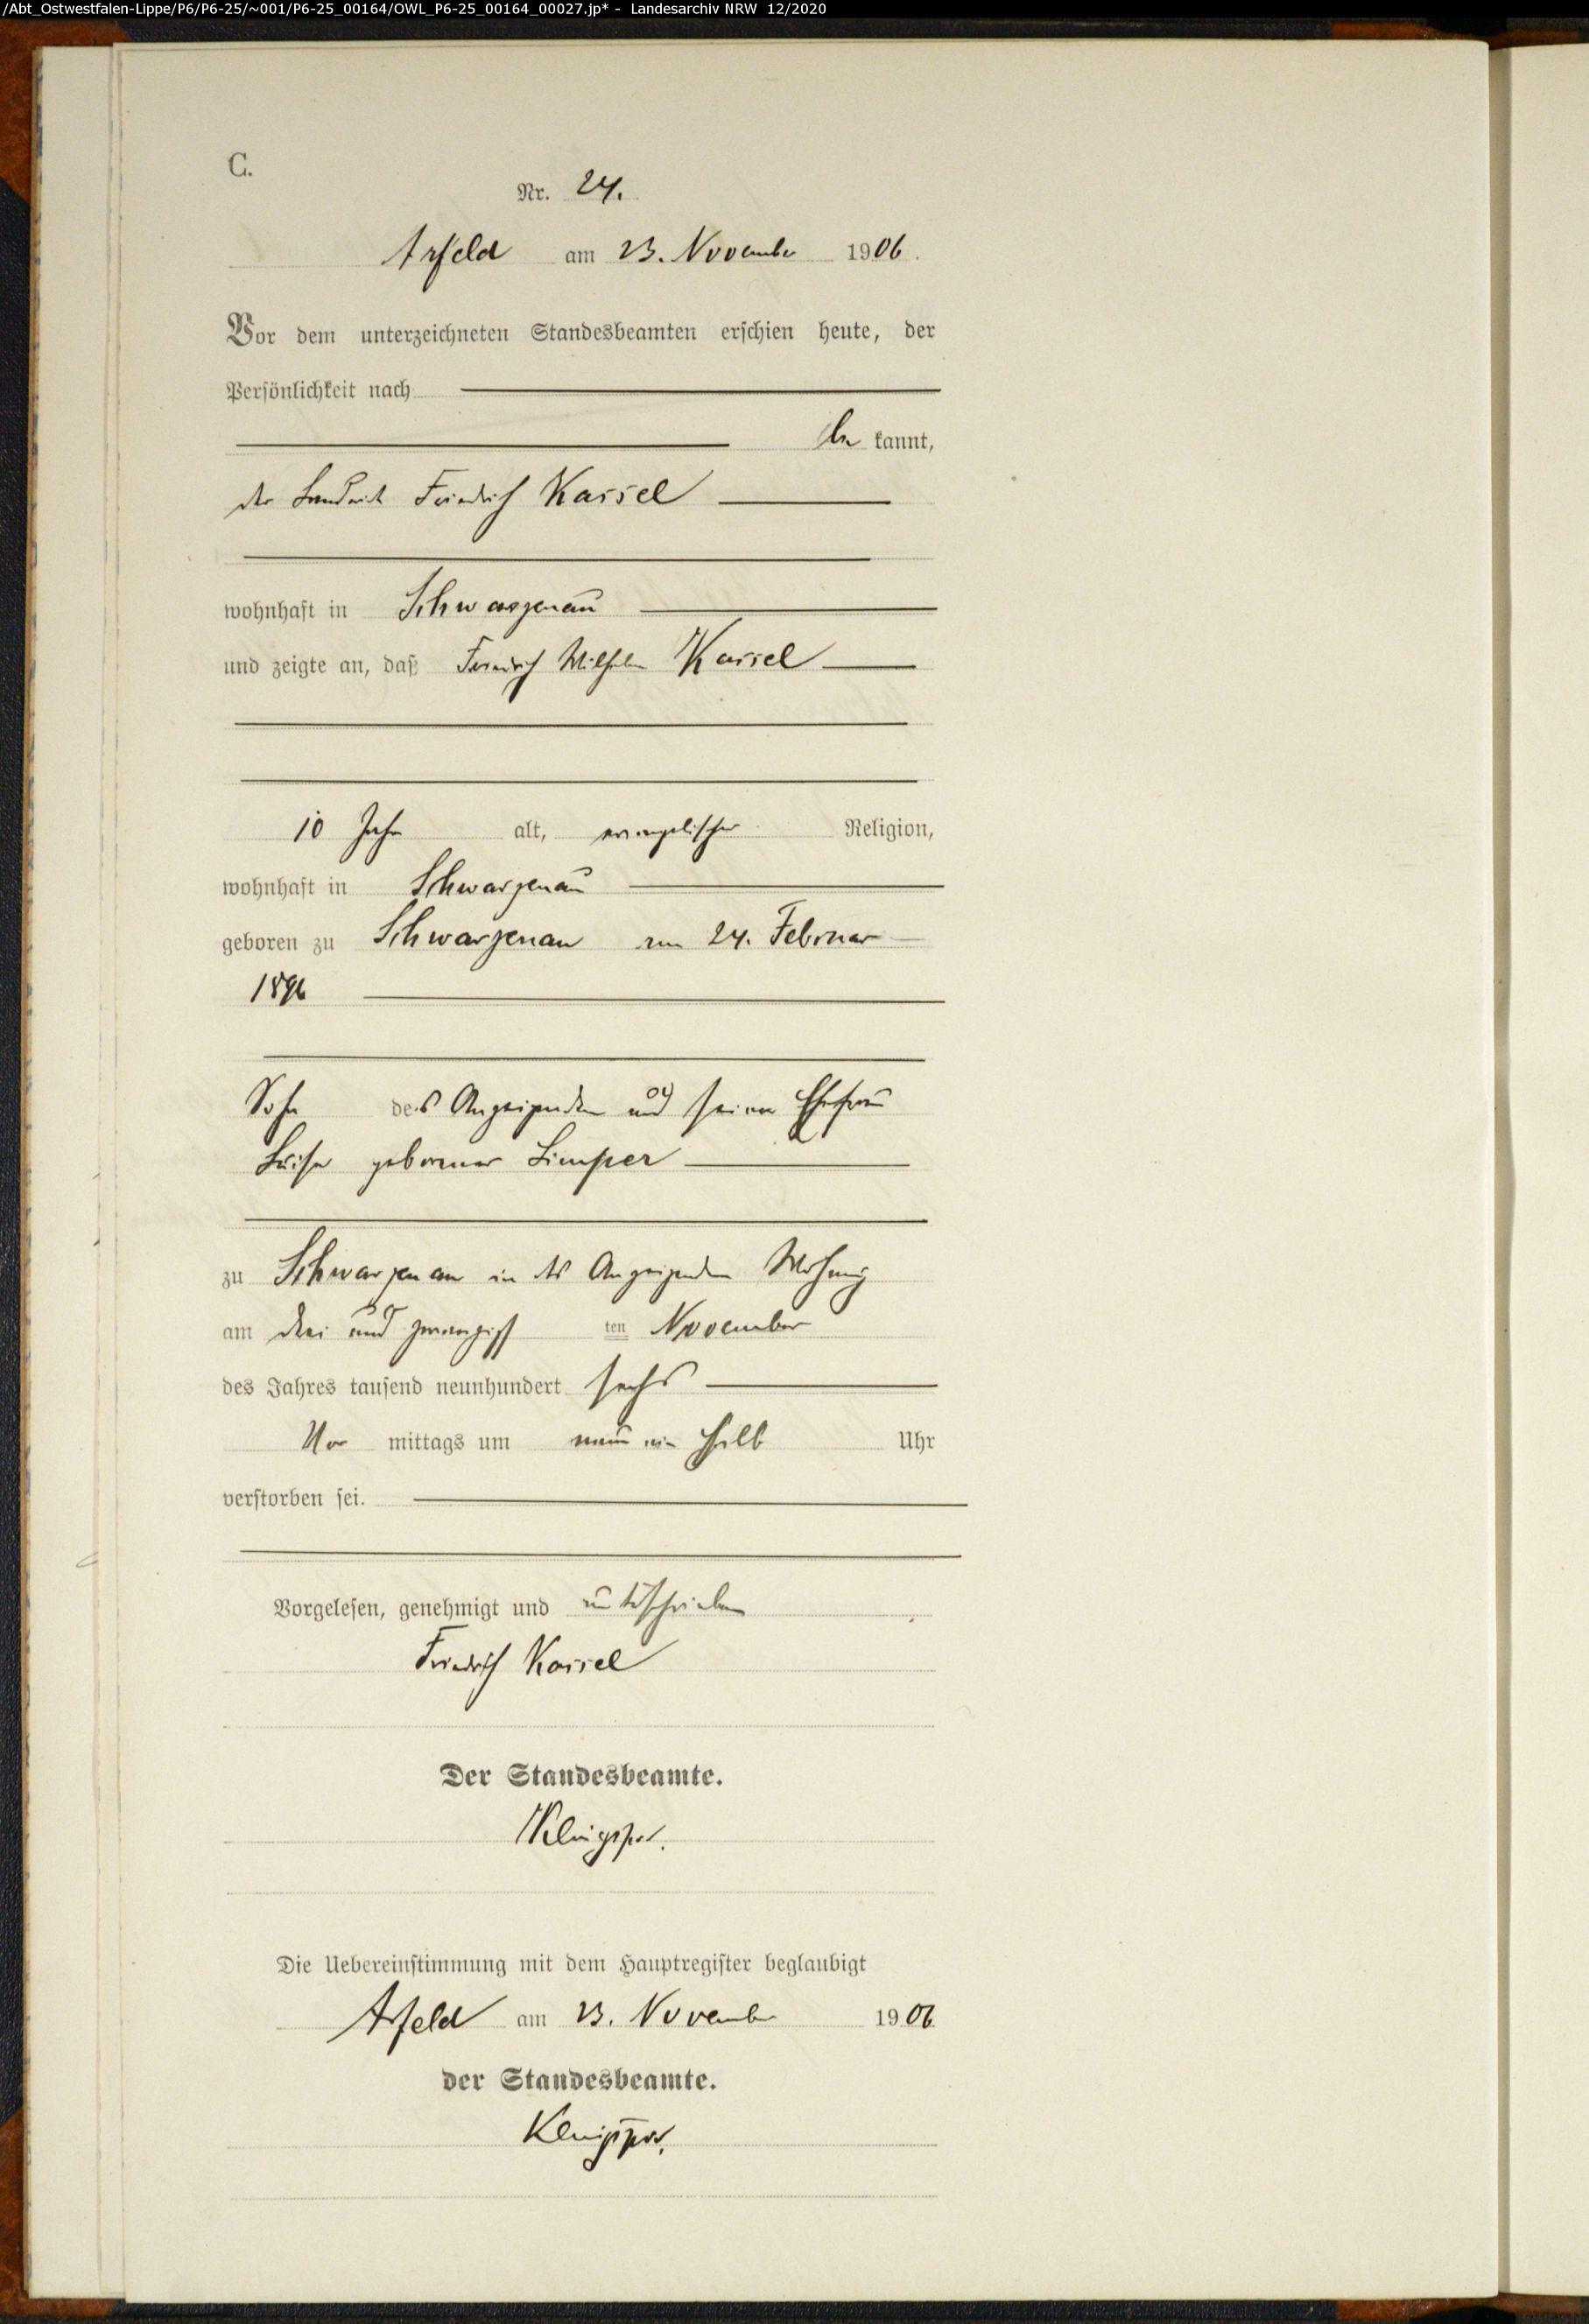 /Abt_Ostwestfalen-Lippe/P6/P6-25/~001/P6-25_00164/OWL_P6-25_00164_00027.jp* - Landesarchiv NRW 12/2020
C.
Nr. 24.
Arfeld am 23. November 1906.
Vor dem unterzeichneten Standesbeamten erschien heute, der
Persönlichkeit nach
be kannt,
der Landwirt Friedrich Kassel
wohnhaft in Schwarzenau
und zeigte an, daß Friedrich Wilhelm Kassel
10 Jahre alt, evangelischer Religion,
wohnhaft in Schwarzenau
geboren zu Schwarzenau am 24. Februar
1896
Sohn des Anzeigenden und seiner Ehefrau
Luise geborener Limper
zu Schwarzenau in des Anzeigenden Wohnung
am drei und zwanzigsten November
des Jahres tausend neunhundert sechs
Vor mittags um neun ein halb Uhr
verstorben sei.
Vorgelesen, genehmigt und unterschrieben
Friedrich Kassel
Der Standesbeamte.
Klingspor.
Die Uebereinstimmung mit dem Hauptregister beglaubigt
Arfeld am 23. November 1906
der Standesbeamte.
Klingspor.